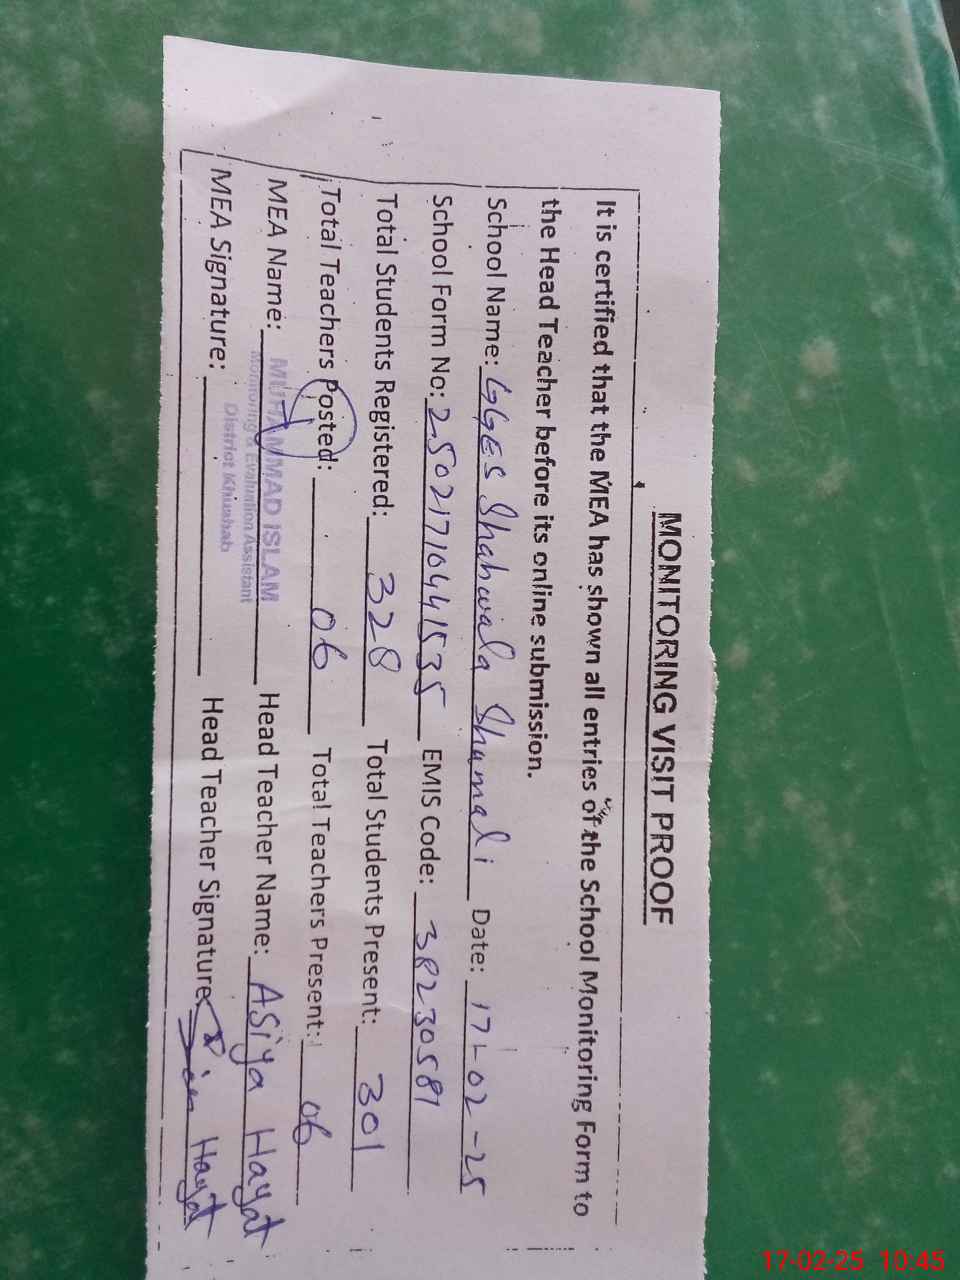 MONITORING VISIT PROOF
It is certified that the MEA has shown all entries of the School Monitoring Form to
the Head Teacher before its online submission.
School Name: GGES Shahwala Shumali Date: 17-02-25
School Form No: 2502171044 1535 EMIS Code: 38230581
Total Students Registered: 328 Total Students Present: 301
Total Teachers Posted: 06 Total Teachers Present: 06
MEA Name: MUHAMMAD ISLAM Head Teacher Name: Asiya Hayat
Monitoring & Evaluation Assistant
District Khushab
MEA Signature: Head Teacher Signature: Hayat
17-02-25 10:45